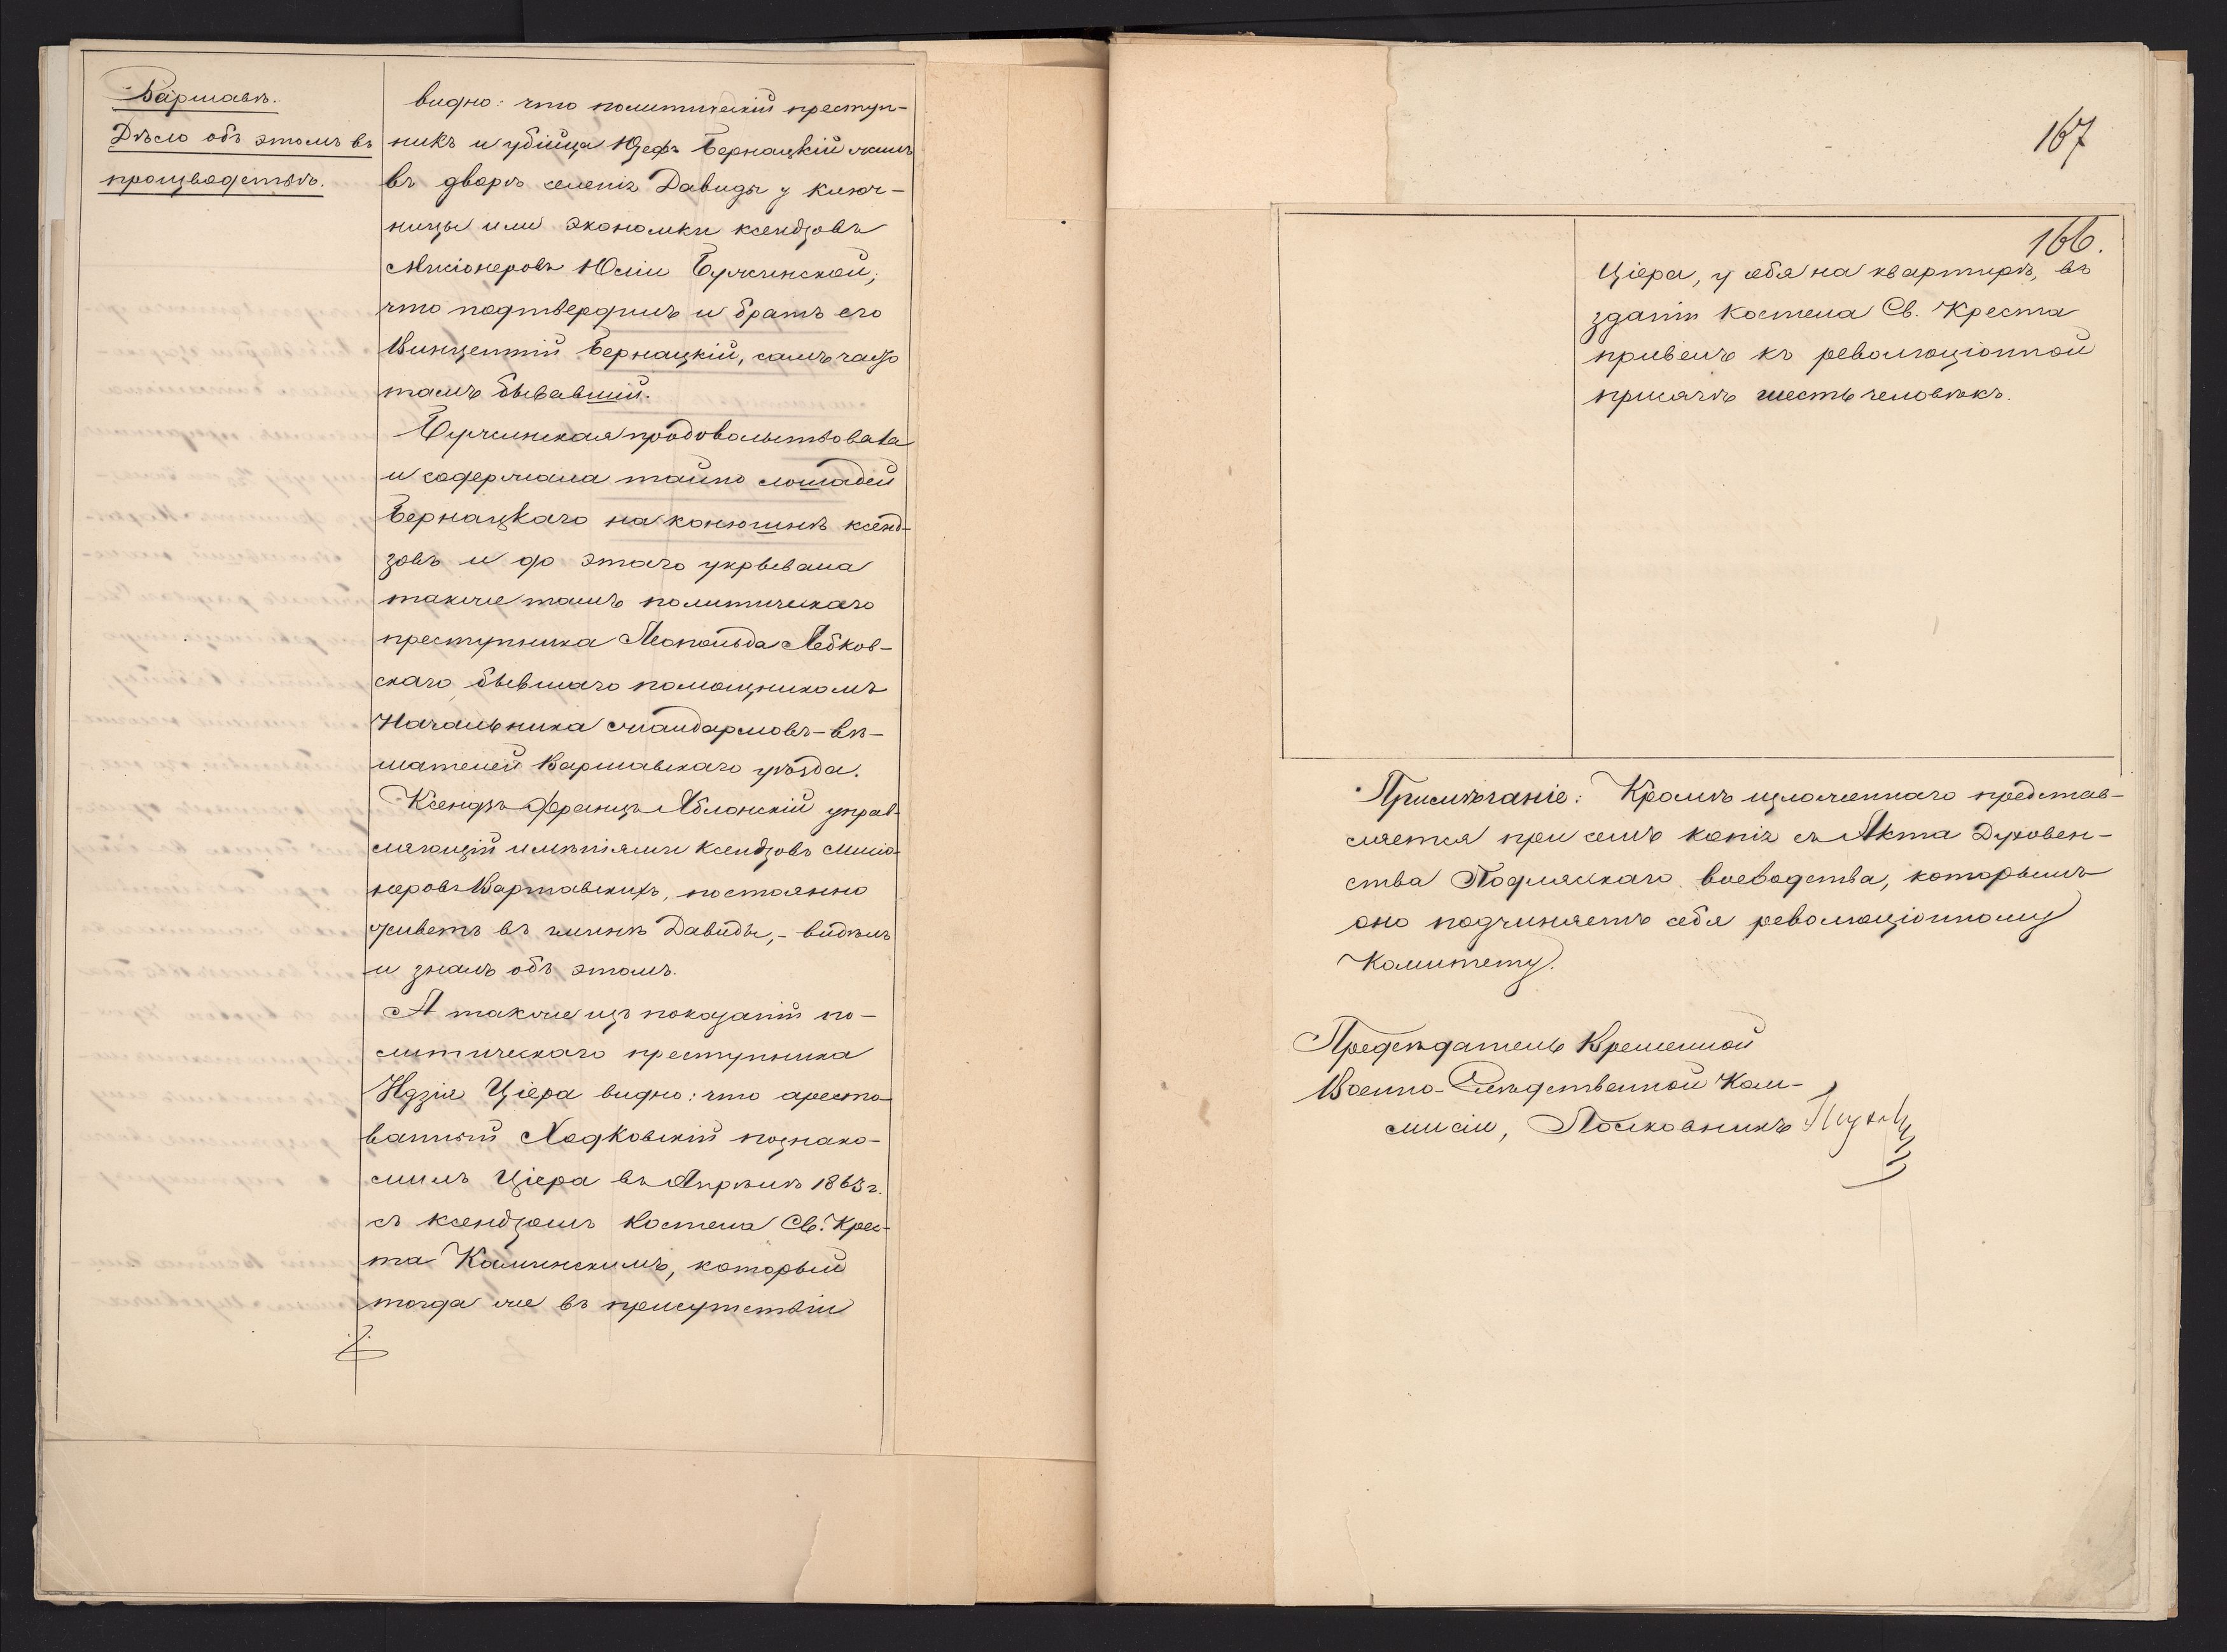 Варшавѣ.
Дѣло объ этомъ въ
производствѣ.
видно: что политическій преступ-
никъ и убійца Юзефъ Бернацкій жилъ
въ дворѣ селенія Давиды у ключ-
ницы или экономки ксендзовъ
Мисіонеровъ Юліи Бужинской,
что подтвердилъ и братъ его
Винцентій Бернацкій, самъ часто
тамъ бывавшій.
продовольствовала
и содержала тайно лошадей
Бернацкаго на конюшнѣ ксенд-
зовъ и до этаго укрывала
также тамъ политическаго
преступника Леопольда Лебков-
скаго бывшаго помощникомъ
Начальника жандармовъ-вѣ-
шателей Варшавскаго уѣзда.
Ксендзъ Францъ Яблонскій управ-
ляющій имѣніями ксендзовъ Мисіо-
неровъ Варшавскихъ, постоянно
живетъ въ имѣніѣ Давиды,- видѣлъ
и зналъ объ этомъ.
А также изъ показаній по-
литическаго преступника
Идзія Ціера видно: что аресто-
ванный Ходковскій познако-
милъ Ціера въ Апрѣлѣ 1863 г.
съ ксендзомъ Костела Св. Крес-
та Каминскимъ, который
тогда же въ присутствіи
167
166.
Ціера, у себя на квартирѣ, въ
зданіи костела Св. Креста
привелъ къ революціонной
присягѣ шесть человѣкъ.
Примѣчаніе: Кромѣ изложеннаго представ-
ляется при семъ копія съ Акта Духовен-
ства Подляскаго воеводства, которымъ
оно подчиняетъ себя революціонному
Комитету.
Предсѣдатель Временной
Военно-Слѣдственной Ком-
мисіи, Полковникъ